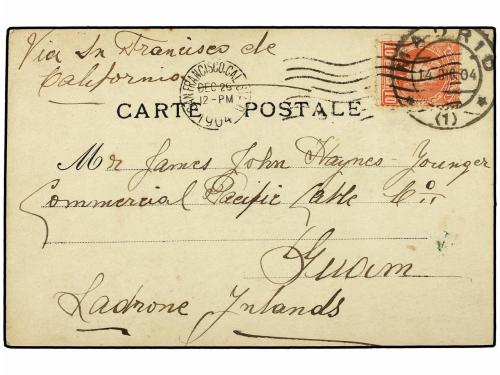 Via Sn Francisco de
California
SAN FRANCISCO, CAL.
DEC 26
12-PM
1904
MADRID
14 DIC 04
(1)
10
CARTE POSTALE
Mr James John Haynes-Younger
Commercial Pacific Cable Co:
Guam
Ladrone Inlands